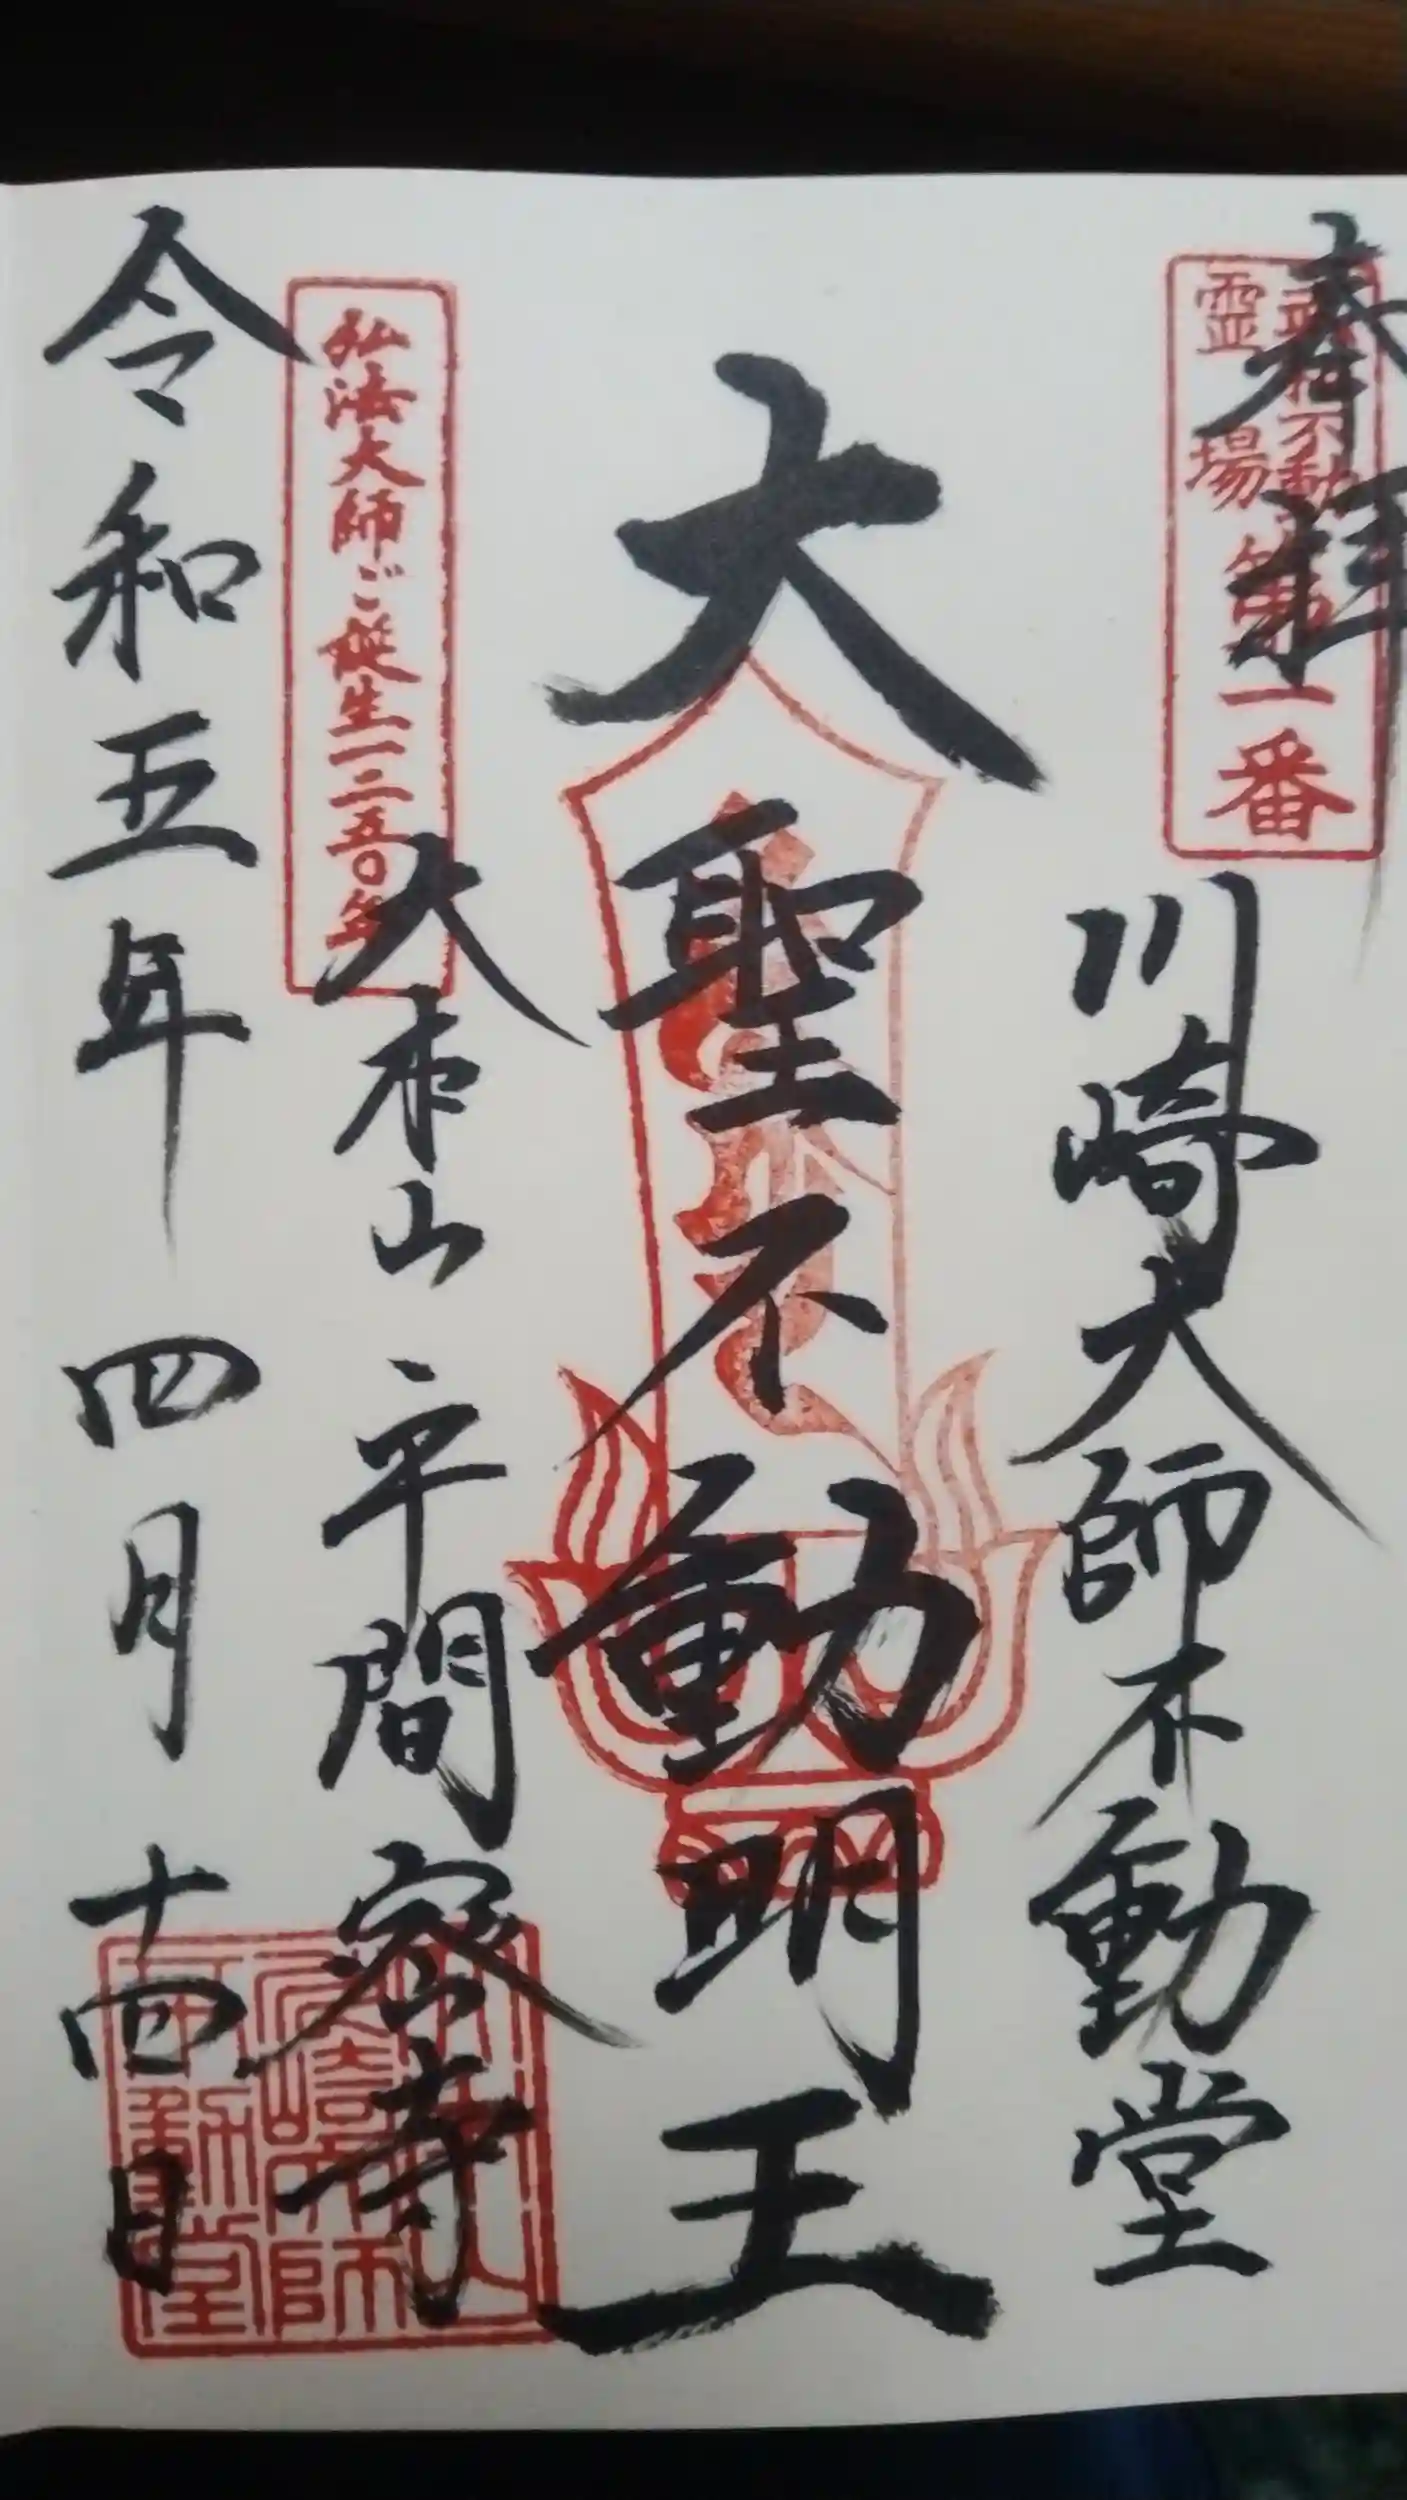 奉拝
武相不動
霊場
第一番
川崎大師不動堂
大聖不動明王
弘法大師ご誕生一二五〇年
大本山 平間寺
令和五年 四月 十四日
川崎大師
不動堂